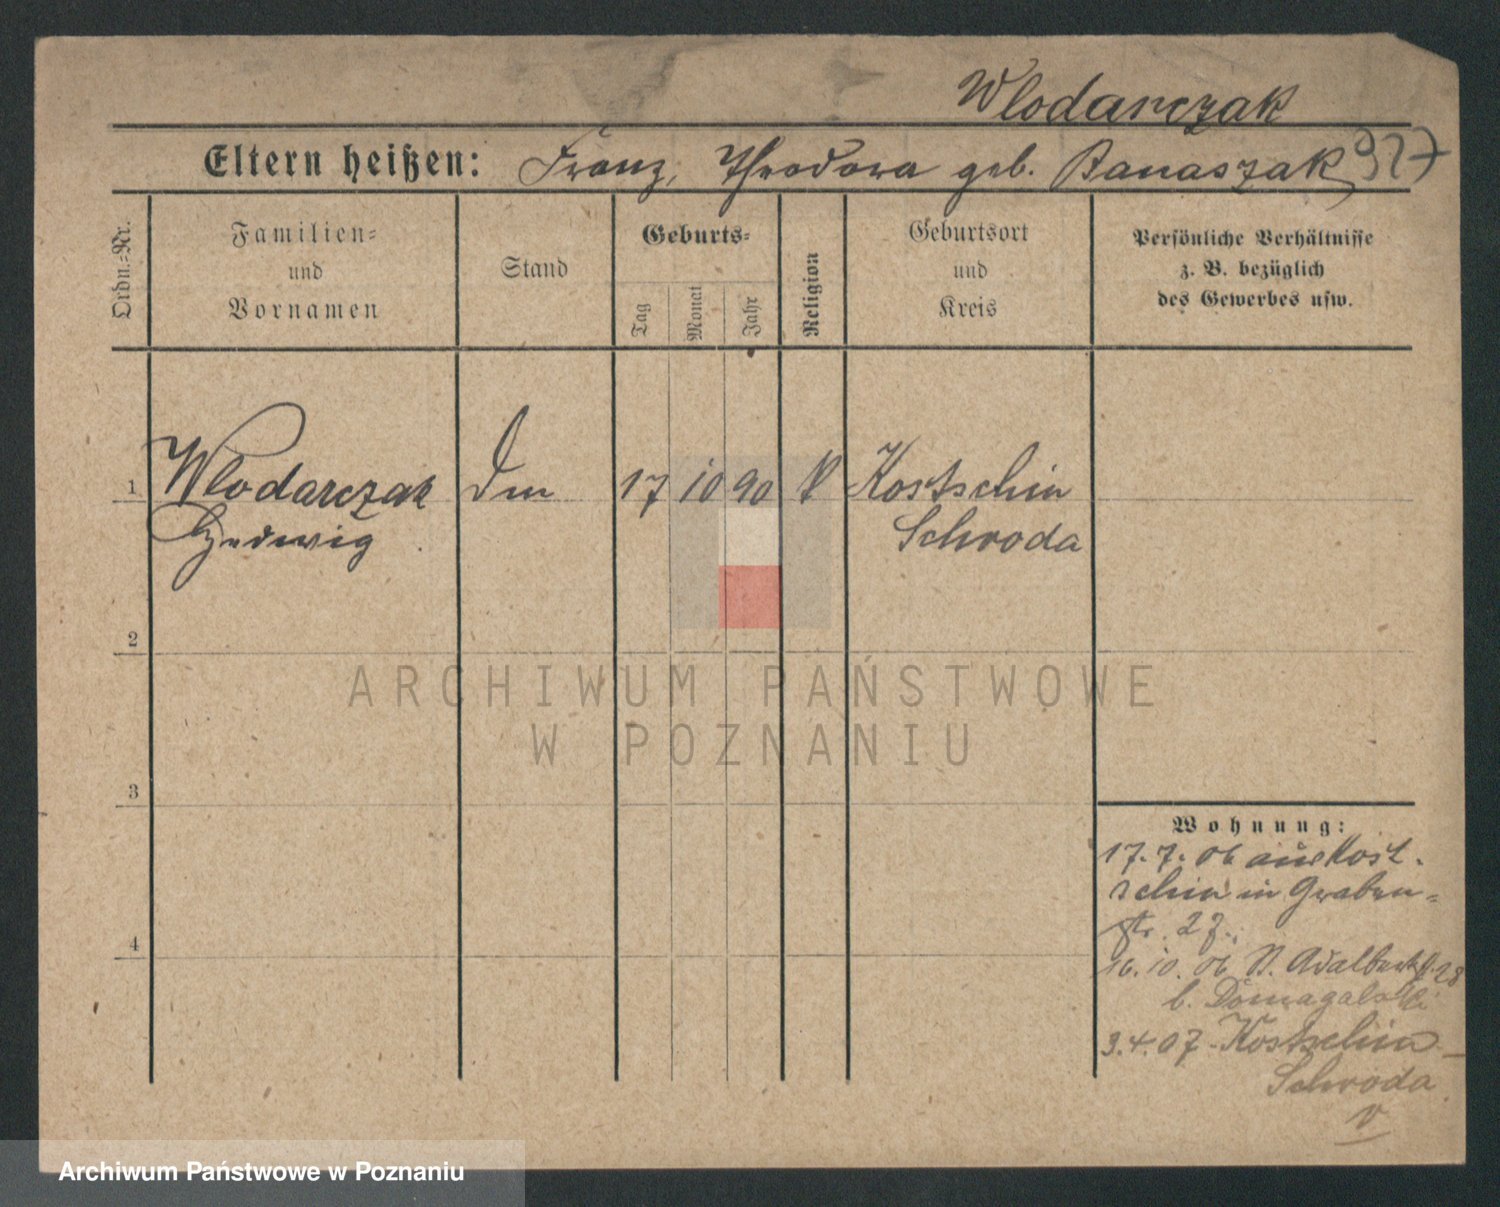 Wlodarczak
Eltern heißen: Franz, Theodora geb. Banaszak 927
Ordn.-Nr.
Familien-
und
Vornamen
Stand
Geburts-
Tag
Monat
Jahr
Religion
Geburtsort
und
Kreis
Persönliche Verhältnisse
z. B. bezüglich
des Gewerbes usw.
1 Wlodarczak 17 10 90 k Kostschin
Hedwig Schroda
2
3
4
Wohnung:
17.7.06 aus Kost-
schin in Graben-
str. 27.
16.10.06 St. Adalbertst. 28
b. Domagalski
3.4.07 - Kostschin -
Schroda
v
ARCHIWUM PAŃSTWOWE
W POZNANIU
Archiwum Państwowe w Poznaniu